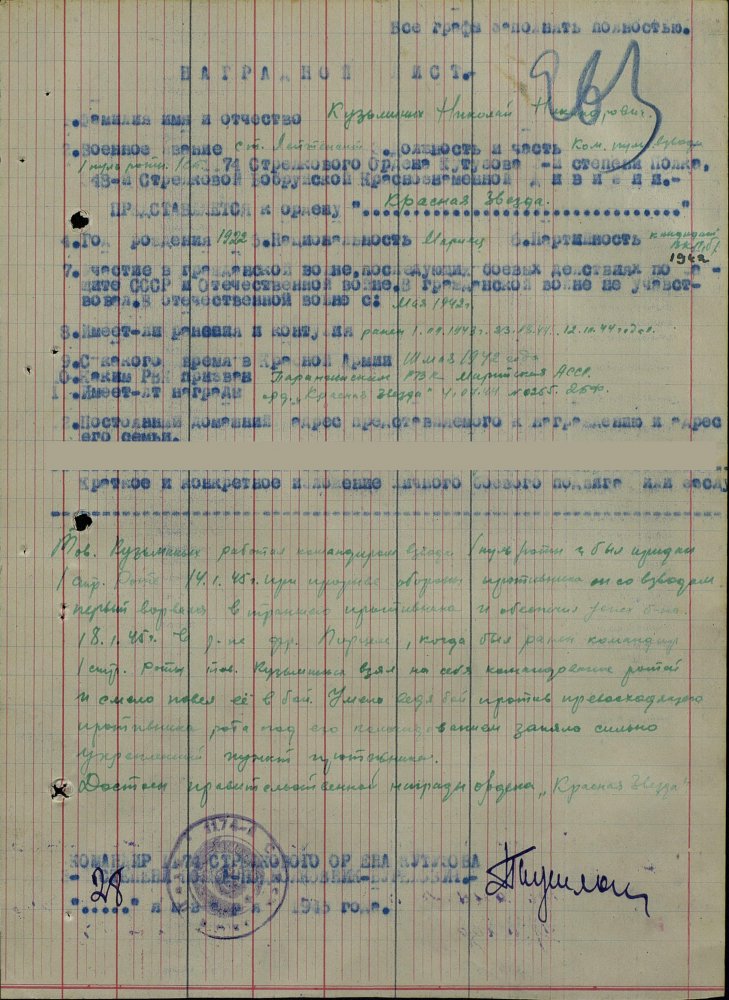 Все графы заполнять полностью.
НАГРАДНОЙ ЛИСТ.-
1. Фамилия имя и отчество Кузьминых Николай Никандрович.
2. Военное звание ст. лейтенант 3. Должность и часть Ком. пул. взвода
1 пульроты. 1174 Стрелкового Ордена Кутузова -й степени полка,
48-й Стрелковой Бобруйской Краснознаменной дивизии.-
ПРЕДСТАВЛЯЕТСЯ к ордену "Красная Звезда."
4. Год рождения 1922 5. Национальность Мариец 6. Партийность кандидат
ВКП(б)
1942
7. Участие в гражданской войне, последующих боевых действиях по за-
щите СССР и Отечественной войне. В гражданской войне не участ-
вовал. В отечественной войне с: Мая 1942г.
8. Имеет-ли ранения и контузия ранен 1.09.1943г. 12.10.44 года.
9. С какого время в Красной Армии 10 мая 1942 года
10. Каким РВК призван Параньгинским РВК Марийская АССР.
11. Имеет-ли награды орд. "Красная Звезда" 4.07.44 №0255. 2БФ.
12. Постоянный домашний адрес представляемого к награждению и адрес
его семьи.
Краткое и конкретное изложение личного боевого подвига или заслу
Тов. Кузьминых работая командиром взвода 1 пульроты и был придан
1 стр. Роте 14.1.45г. при прорыве обороны противника он со взводом
первый ворвался в траншею противника и обеспечил успех боя.
18.1.45г. в р-не когда был ранен командир
1 стр. роты тов. Кузьминых взял на себя командование ротой
и смело повел её в бой. Умело ведя бой против превосходящего
противника рота под его командованием заняла сильно
укрепленный пункт противника.
Достоин правительственной награды ордена "Красная Звезда"
КОМАНДИР 1174 СТРЕЛКОВОГО ОРДЕНА КУТУЗОВА
"28" января 1945 года.